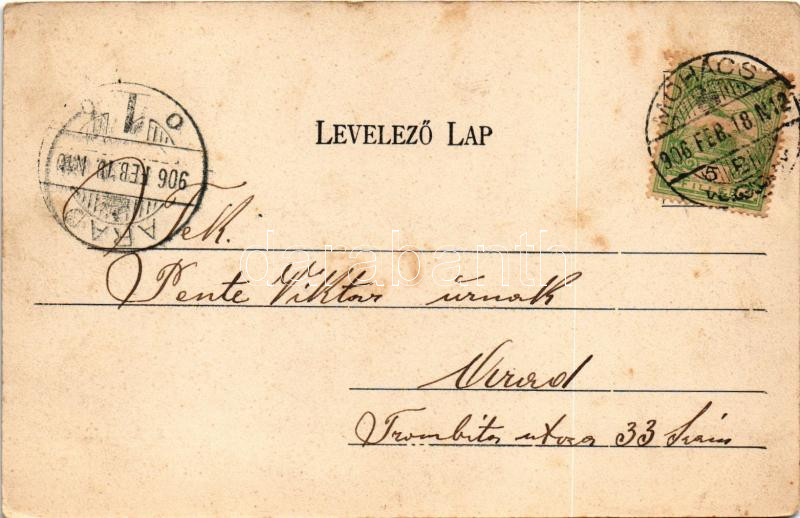 LEVELEZŐ LAP
MOHÁCS
906 FEB. 18 N.12
ARAD
906 FEB. 19
Tek.
Pente Viktor úrnak
Arad
Trombita utcza 33 Szám
darabanth